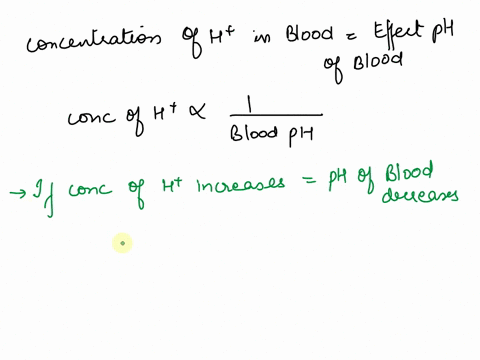 concentration of H+ in Blood = Effect pH
of Blood
conc of H+ ∝ 1
Blood pH
→ If conc of H+ increases = pH of Blood
decreases